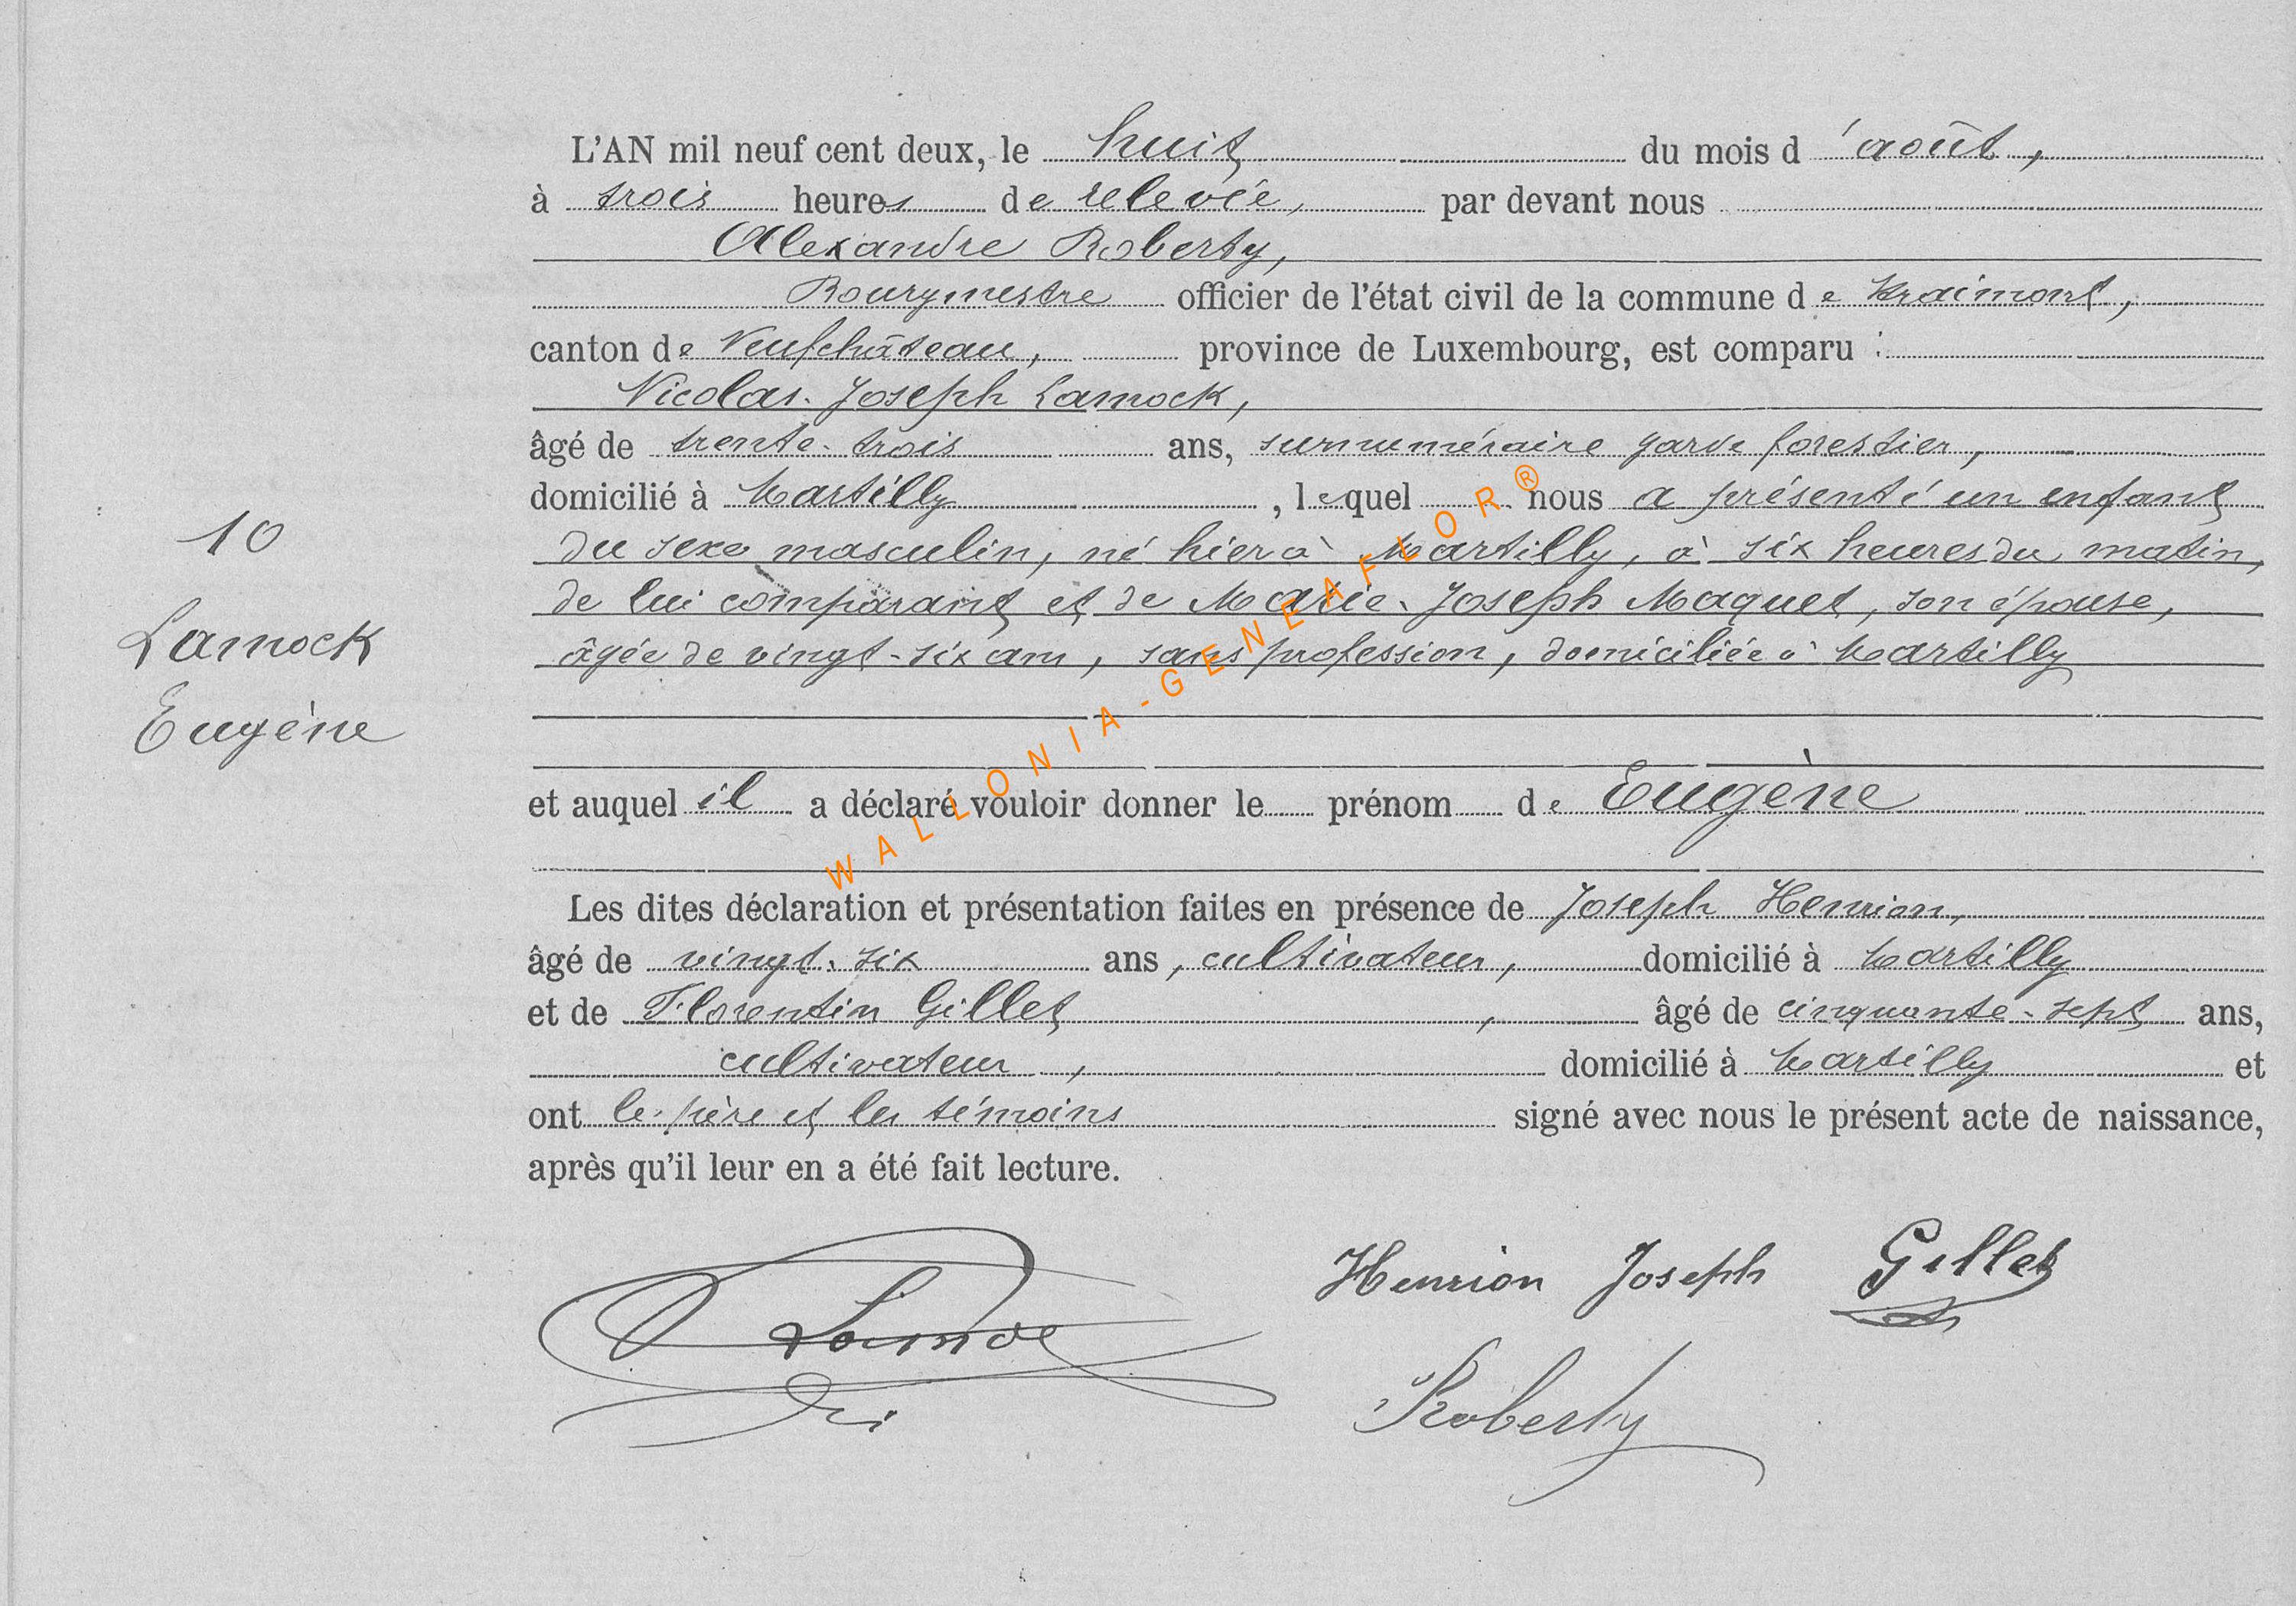 L'AN mil neuf cent deux, le huit du mois d'août,
à trois heures de relevée, par devant nous
Alexandre Roberty,
Bourgmestre officier de l'état civil de la commune de Straimont,
canton de Neufchâteau, province de Luxembourg, est comparu :
Nicolas-Joseph Lamock,
âgé de trente-trois ans, surnuméraire garde forestier,
domicilié à Martilly, lequel nous a présenté un enfant
10
du sexe masculin, né hier à Martilly, à six heures du matin,
de lui comparant et de Marie-Joseph Maquet, son épouse,
Lamock
âgée de vingt-six ans, sans profession, domiciliée à Martilly
Eugène
et auquel il a déclaré vouloir donner le prénom de Eugène
Les dites déclaration et présentation faites en présence de Joseph Henrion,
âgé de vingt-six ans, cultivateur, domicilié à Martilly
et de Florentin Gillet, âgé de cinquante-sept ans,
cultivateur, domicilié à Martilly et
ont le père et les témoins signé avec nous le présent acte de naissance,
après qu'il leur en a été fait lecture.
Henrion Joseph Gillet
Roberty
WALLONIA-GENEAFLOR®